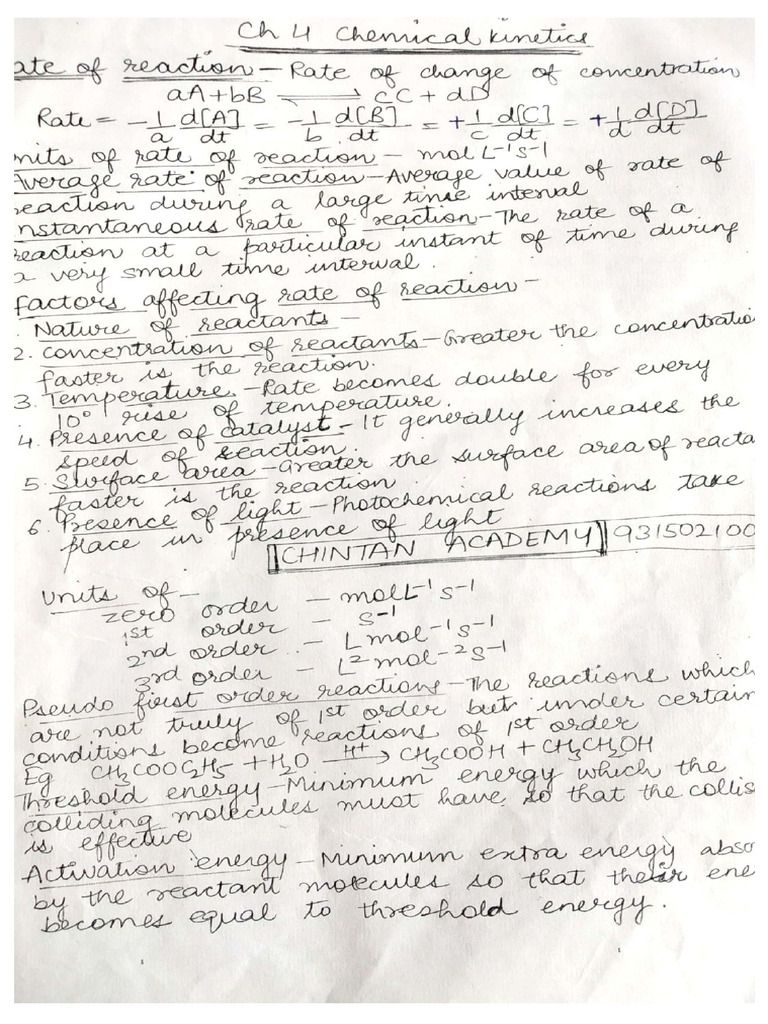 Ch 4 Chemical kinetics
ate of reaction - Rate of change of concentration
aA + bB ⟶ cC + dD
Rate = -1/a d[A]/dt = -1/b d[B]/dt = +1/c d[C]/dt = +1/d d[D]/dt
nits of rate of reaction - mol L⁻¹s⁻¹
Average rate of reaction - Average value of rate of
reaction during a large time interval
nstantaneous rate of reaction - The rate of a
reaction at a particular instant of time during
a very small time interval.
Factors affecting rate of reaction -
. Nature of reactants -
2. Concentration of reactants - Greater the concentratio
faster is the reaction.
3. Temperature - Rate becomes double for every
10° rise of temperature.
4. Presence of catalyst - It generally increases the
speed of reaction.
5. Surface area - Greater the surface area of reacta
faster is the reaction
6. Presence of light - Photochemical reactions take
place in presence of light
CHINTAN ACADEMY 931502100
Units of -
zero order - mol L⁻¹ s⁻¹
1st order - s⁻¹
2nd order - L mol⁻¹ s⁻¹
3rd order - L² mol⁻² s⁻¹
Pseudo first order reactions - The reactions which
are not truly of 1st order but under certain
conditions become reactions of 1st order
Eg CH3COOC2H5 + H2O —H⁺→ CH3COOH + CH3CH2OH
Threshold energy - Minimum energy which the
colliding molecules must have, so that the collis
is effective
Activation energy - Minimum extra energy abso
by the reactant molecules so that their ene
becomes equal to threshold energy.